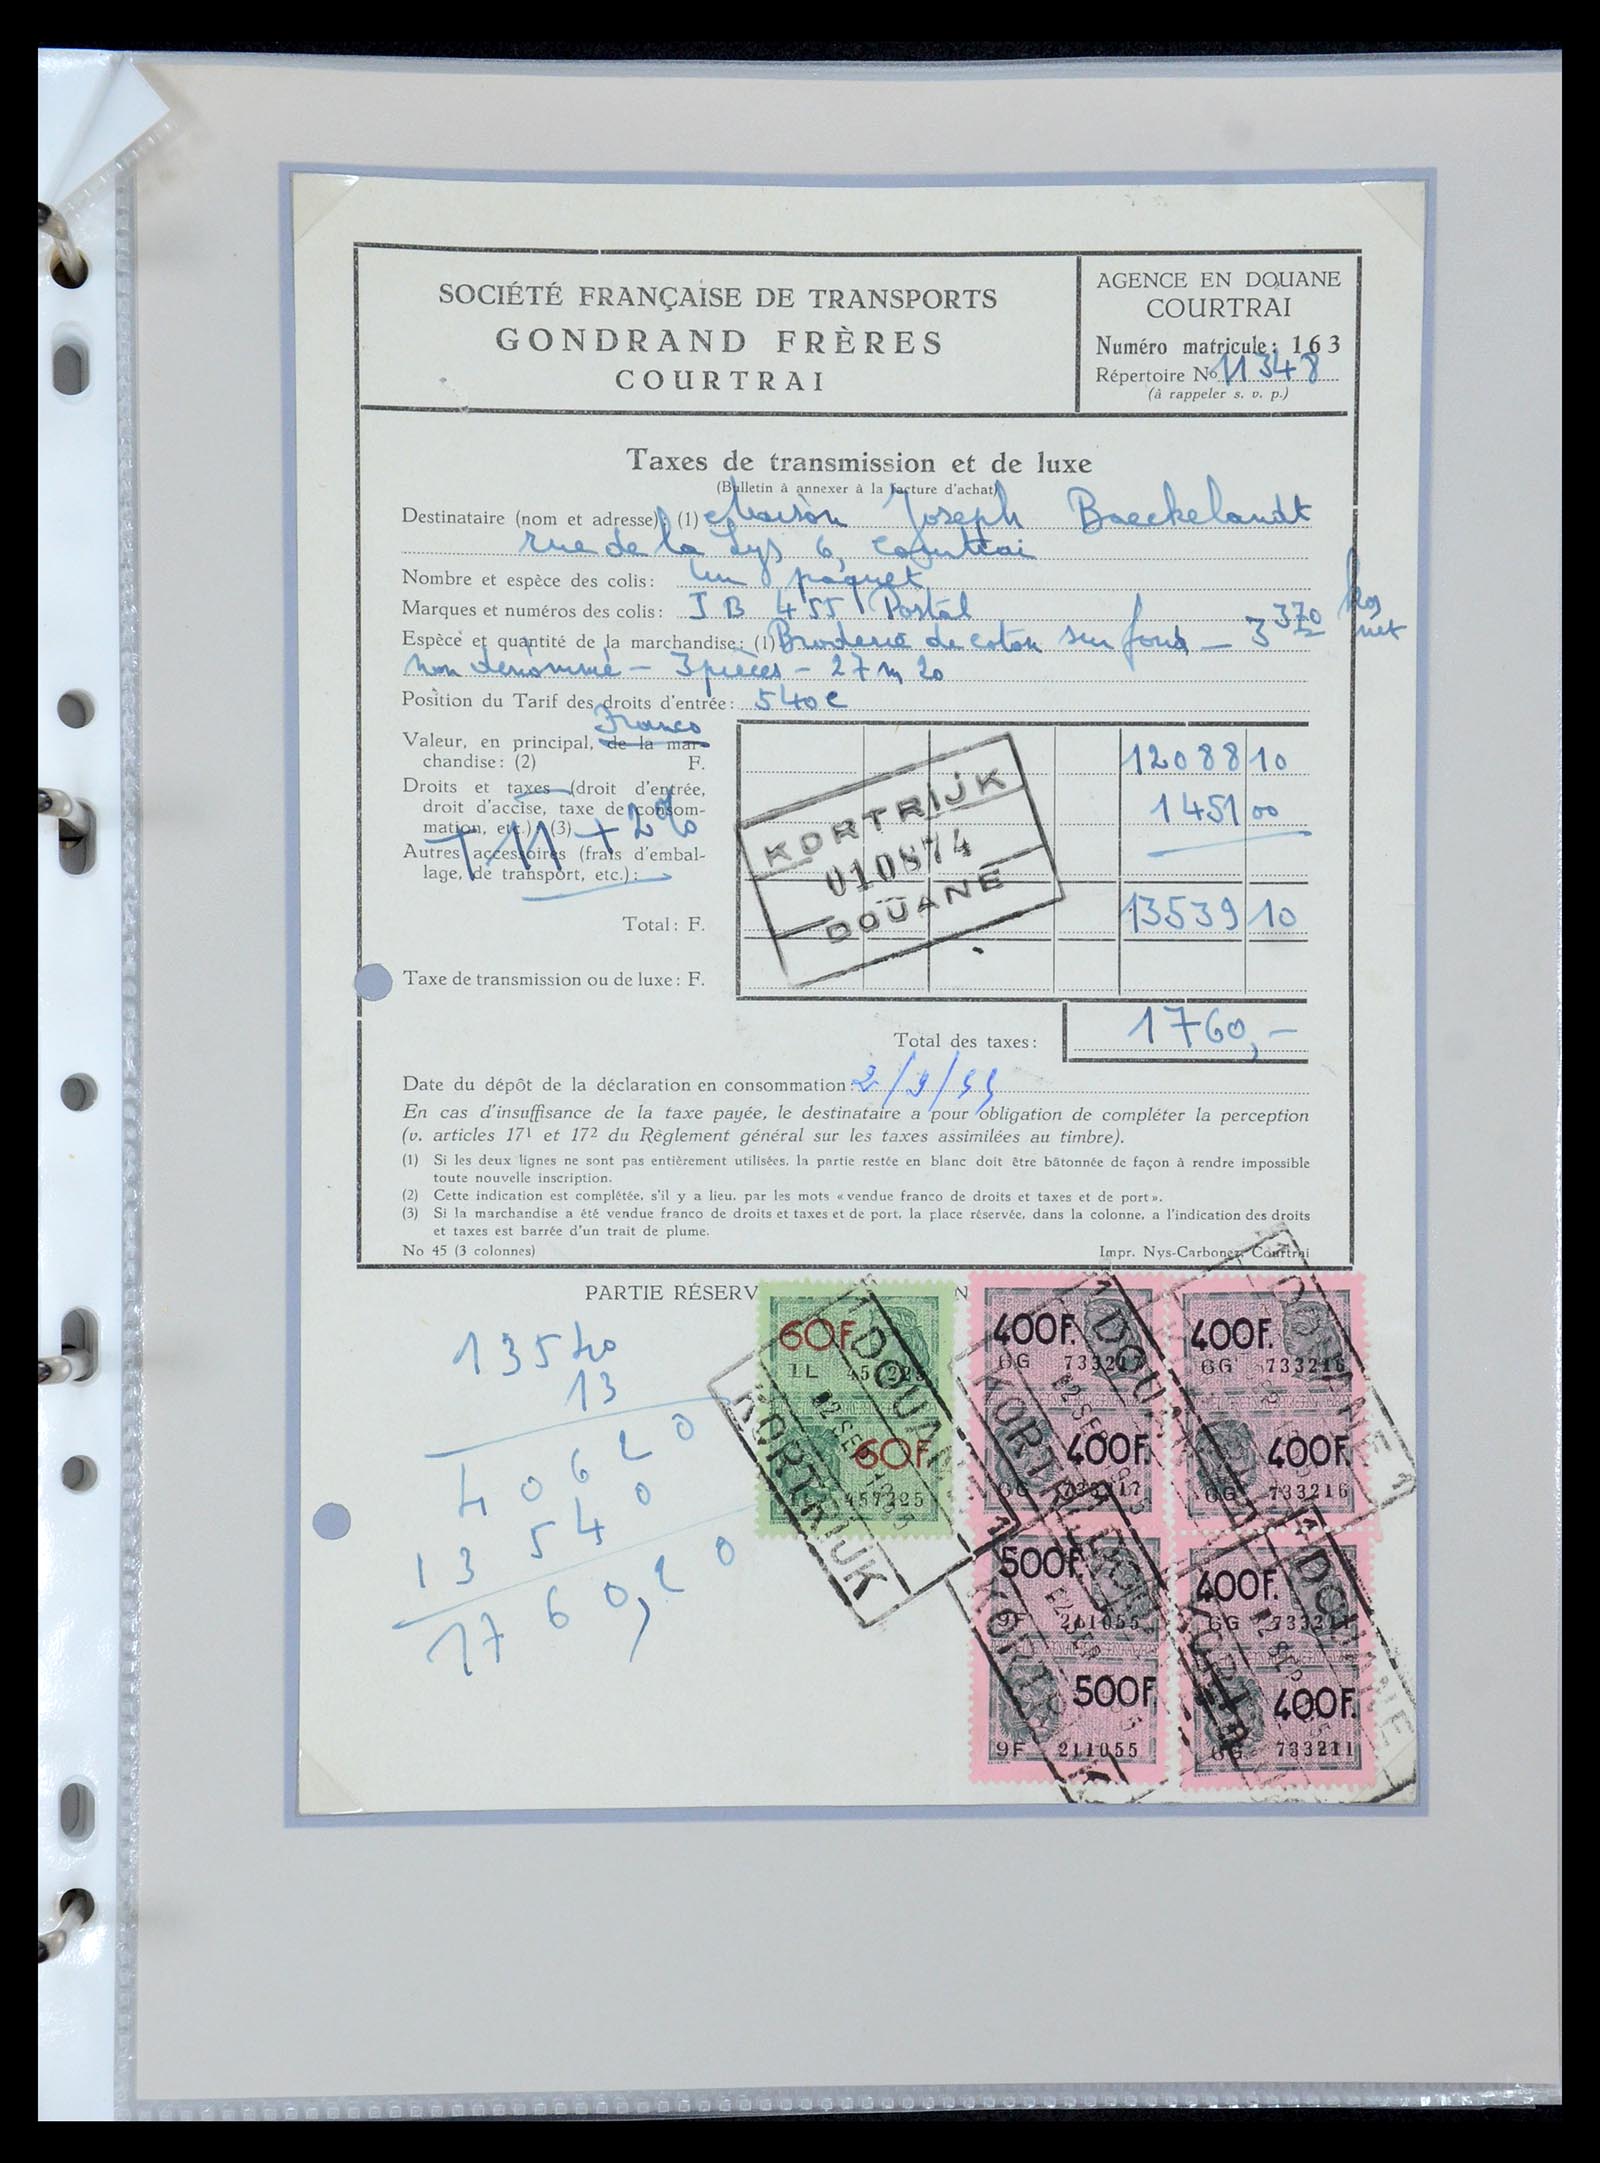 SOCIÉTÉ FRANÇAISE DE TRANSPORTS
GONDRAND FRÈRES
COURTRAI
AGENCE EN DOUANE
COURTRAI
Numéro matricule: 163
Répertoire No 11348
(à rappeler s. v. p.)
Taxes de transmission et de luxe
(Bulletin à annexer à la facture d'achat)
Destinataire (nom et adresse): (1) Maison Joseph Baeckelandt
rue de la Lys 6, Courtrai
Nombre et espèce des colis: Un paquet
Marques et numéros des colis: J B 455 Postal
Espèce et quantité de la marchandise: (1) Broderie de coton sur fond — 3 370 kg net
non dénommé — 3 pièces — 27 m 20
Position du Tarif des droits d'entrée: 540 c
Franco
Valeur, en principal, de la mar-
chandise: (2) F. 12088 10
Droits et taxes (droit d'entrée,
droit d'accise, taxe de consom-
mation, etc.): (3) 1451 00
+ 11 + 2%
Autres accessoires (frais d'embal-
lage, de transport, etc.):
KORTRIJK
010874
DOUANE
Total: F. 13539 10
Taxe de transmission ou de luxe: F.
Total des taxes: 1760,—
Date du dépôt de la déclaration en consommation: 2/9/55
En cas d'insuffisance de la taxe payée, le destinataire a pour obligation de compléter la perception
(v. articles 17¹ et 17² du Règlement général sur les taxes assimilées au timbre).
(1) Si les deux lignes ne sont pas entièrement utilisées, la partie restée en blanc doit être bâtonnée de façon à rendre impossible
toute nouvelle inscription.
(2) Cette indication est complétée, s'il y a lieu, par les mots « vendue franco de droits et taxes et de port ».
(3) Si la marchandise a été vendue franco de droits et taxes et de port, la place réservée, dans la colonne, a l'indication des droits
et taxes est barrée d'un trait de plume.
No 45 (3 colonnes) Impr. Nys-Carbonez, Courtrai
PARTIE RÉSERV N
13540
13
40620
13540
1760,20
60F.
60F.
457225
DOUANE
KORTRIJK
400F. 400F.
GG 733217 GG 733216
400F. 400F.
GG 733217 GG 733216
DOUANE
KORTRIJK
500F. 400F.
9F 211055 GG 733211
500F. 400F.
9F 211055 GG 733211
DOUANE